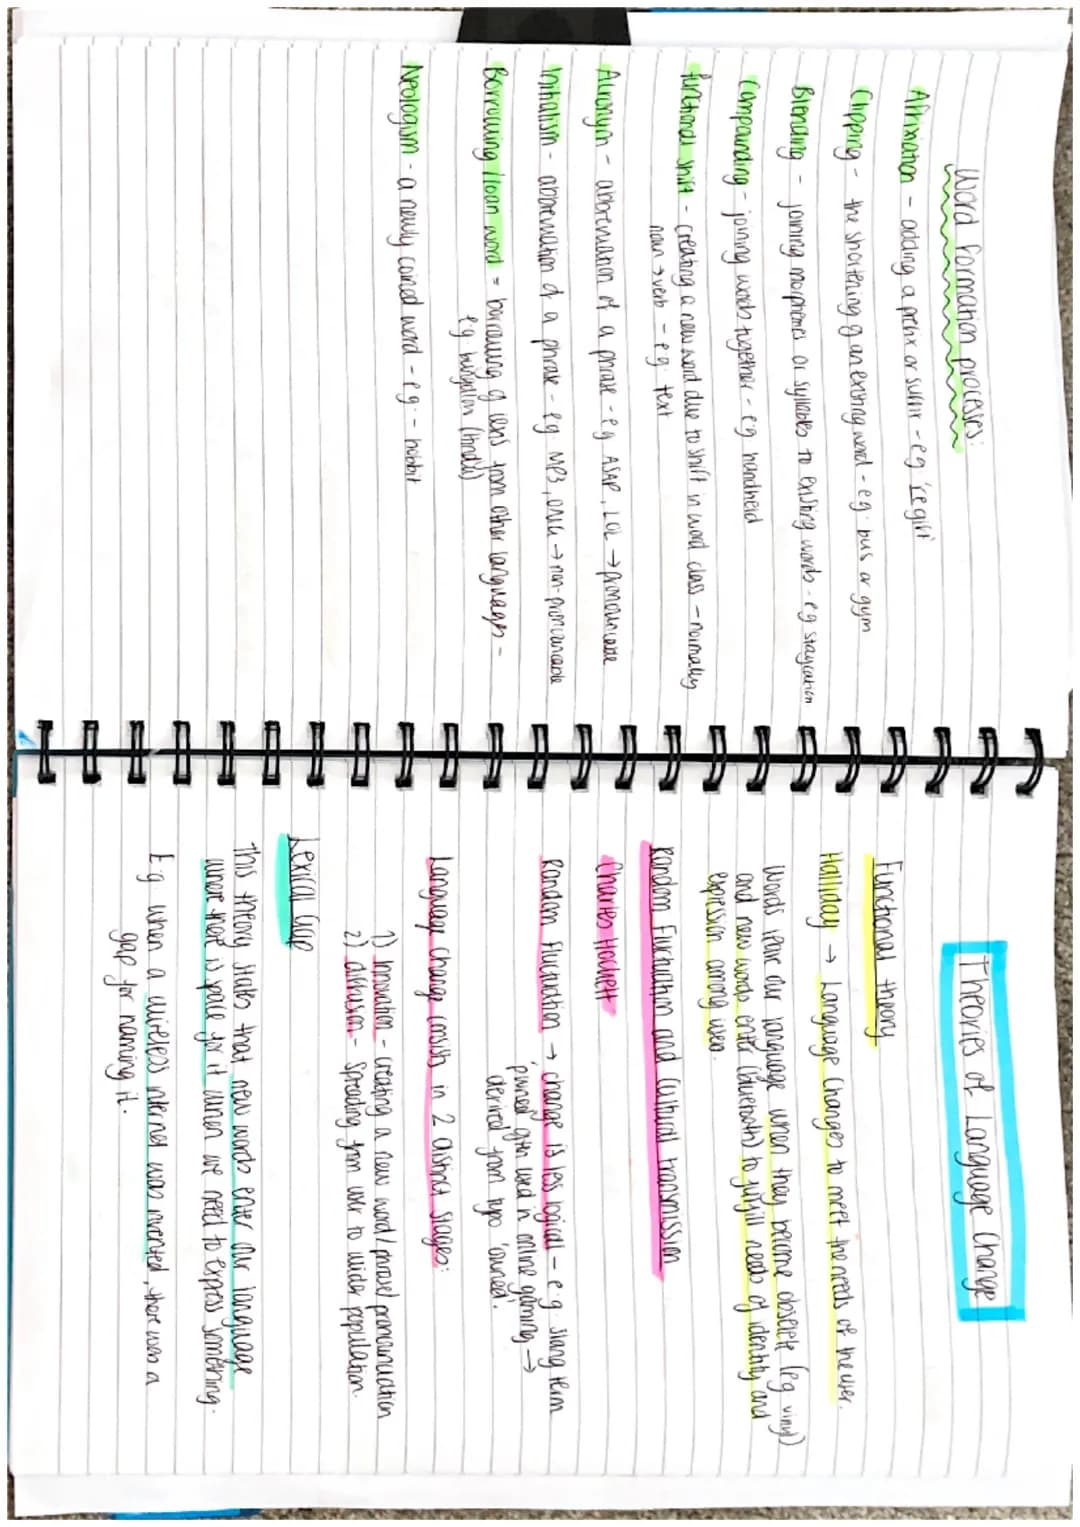 Word formation processes:
Affixation - adding a prefix or suffix - eg 'regift'
Clipping - the shortening of an existing word - eg. bus or gym
Blending - joining morphemes or syllables to existing words - eg staycation
Compounding - joining words together - eg handheld
functional shift - creating a new word due to shift in word class - normally
noun → verb - eg. text
Acronym - abbreviation of a phrase - eg ASAP, LOL → pronounceable
Initialism - abbreviation of a phrase - eg MP3, → non-pronounceable
Borrowing/loan word = borrowing of from other languages -
eg (hindi)
Neologism - a newly coined word - eg - hobbit
Theories of Language Change
Functional theory
Halliday → Language changes to meet the needs of the user.
Words leave our language when they become obselete (eg vinyl)
and new words enter (Bluetooth) to fulfill needs of identity and
expression among users.
Random Fluctuation and Cultural transmission
Charles Hockett
Random fluctuation → change is less logical - e.g. slang term
'pwned' given used in online gaming →
derived from typo 'owned'.
Language change consists in 2 distinct stages:
1) Innovation - creating a new word/phrase/pronounciation
2) diffusion - Spreading from user to wider population.
Lexical Gap
This theory states that new words enter our language
where there is space for it when we need to express something.
E.g. when a wireless internet was invented, there was a
gap for naming it.